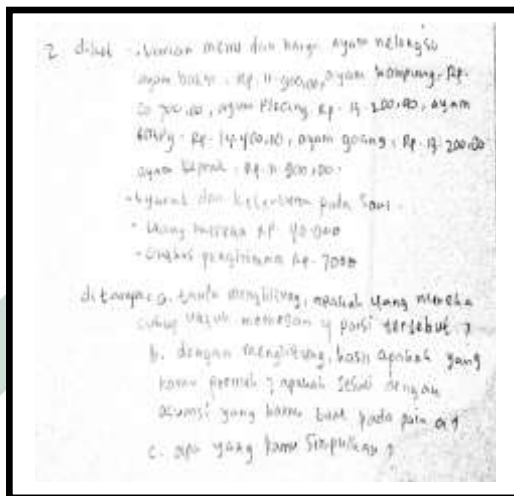 2 diket - Varian menu dan harga ayam nelongso
ayam bakar. Rp. 11.900,00, ayam kampung. Rp.
20.700,00, ayam Plecing. Rp. 13.200,00, ayam
Rp. 14.400,00, ayam goreng. Rp. 13.200,00
ayam geprek. Rp. 11.900,00.
- Syarat dan ketentuan pada Soal.
- Uang mereka RP 40.000
- Ongkos pengiriman Rp. 7000
ditanya a. tanpa menghitung, apakah uang mereka
cukup untuk memesan 4 porsi tersebut?
b. dengan menghitung, hasil apakah yang
kamu peroleh? apakah sesuai dengan
asumsi yang kamu buat pada poin a?
c. apa yang kamu Simpulkan?